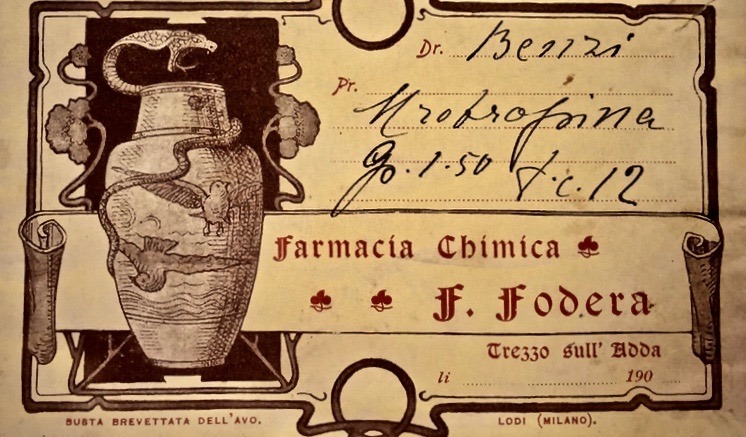 Dr. Benzi
Pr. Urotropina
gr. 1.50 f.c. 12
Farmacia Chimica
F. Fodera
Trezzo sull' Adda
li 190
BUSTA BREVETTATA DELL'AVO. LODI (MILANO).